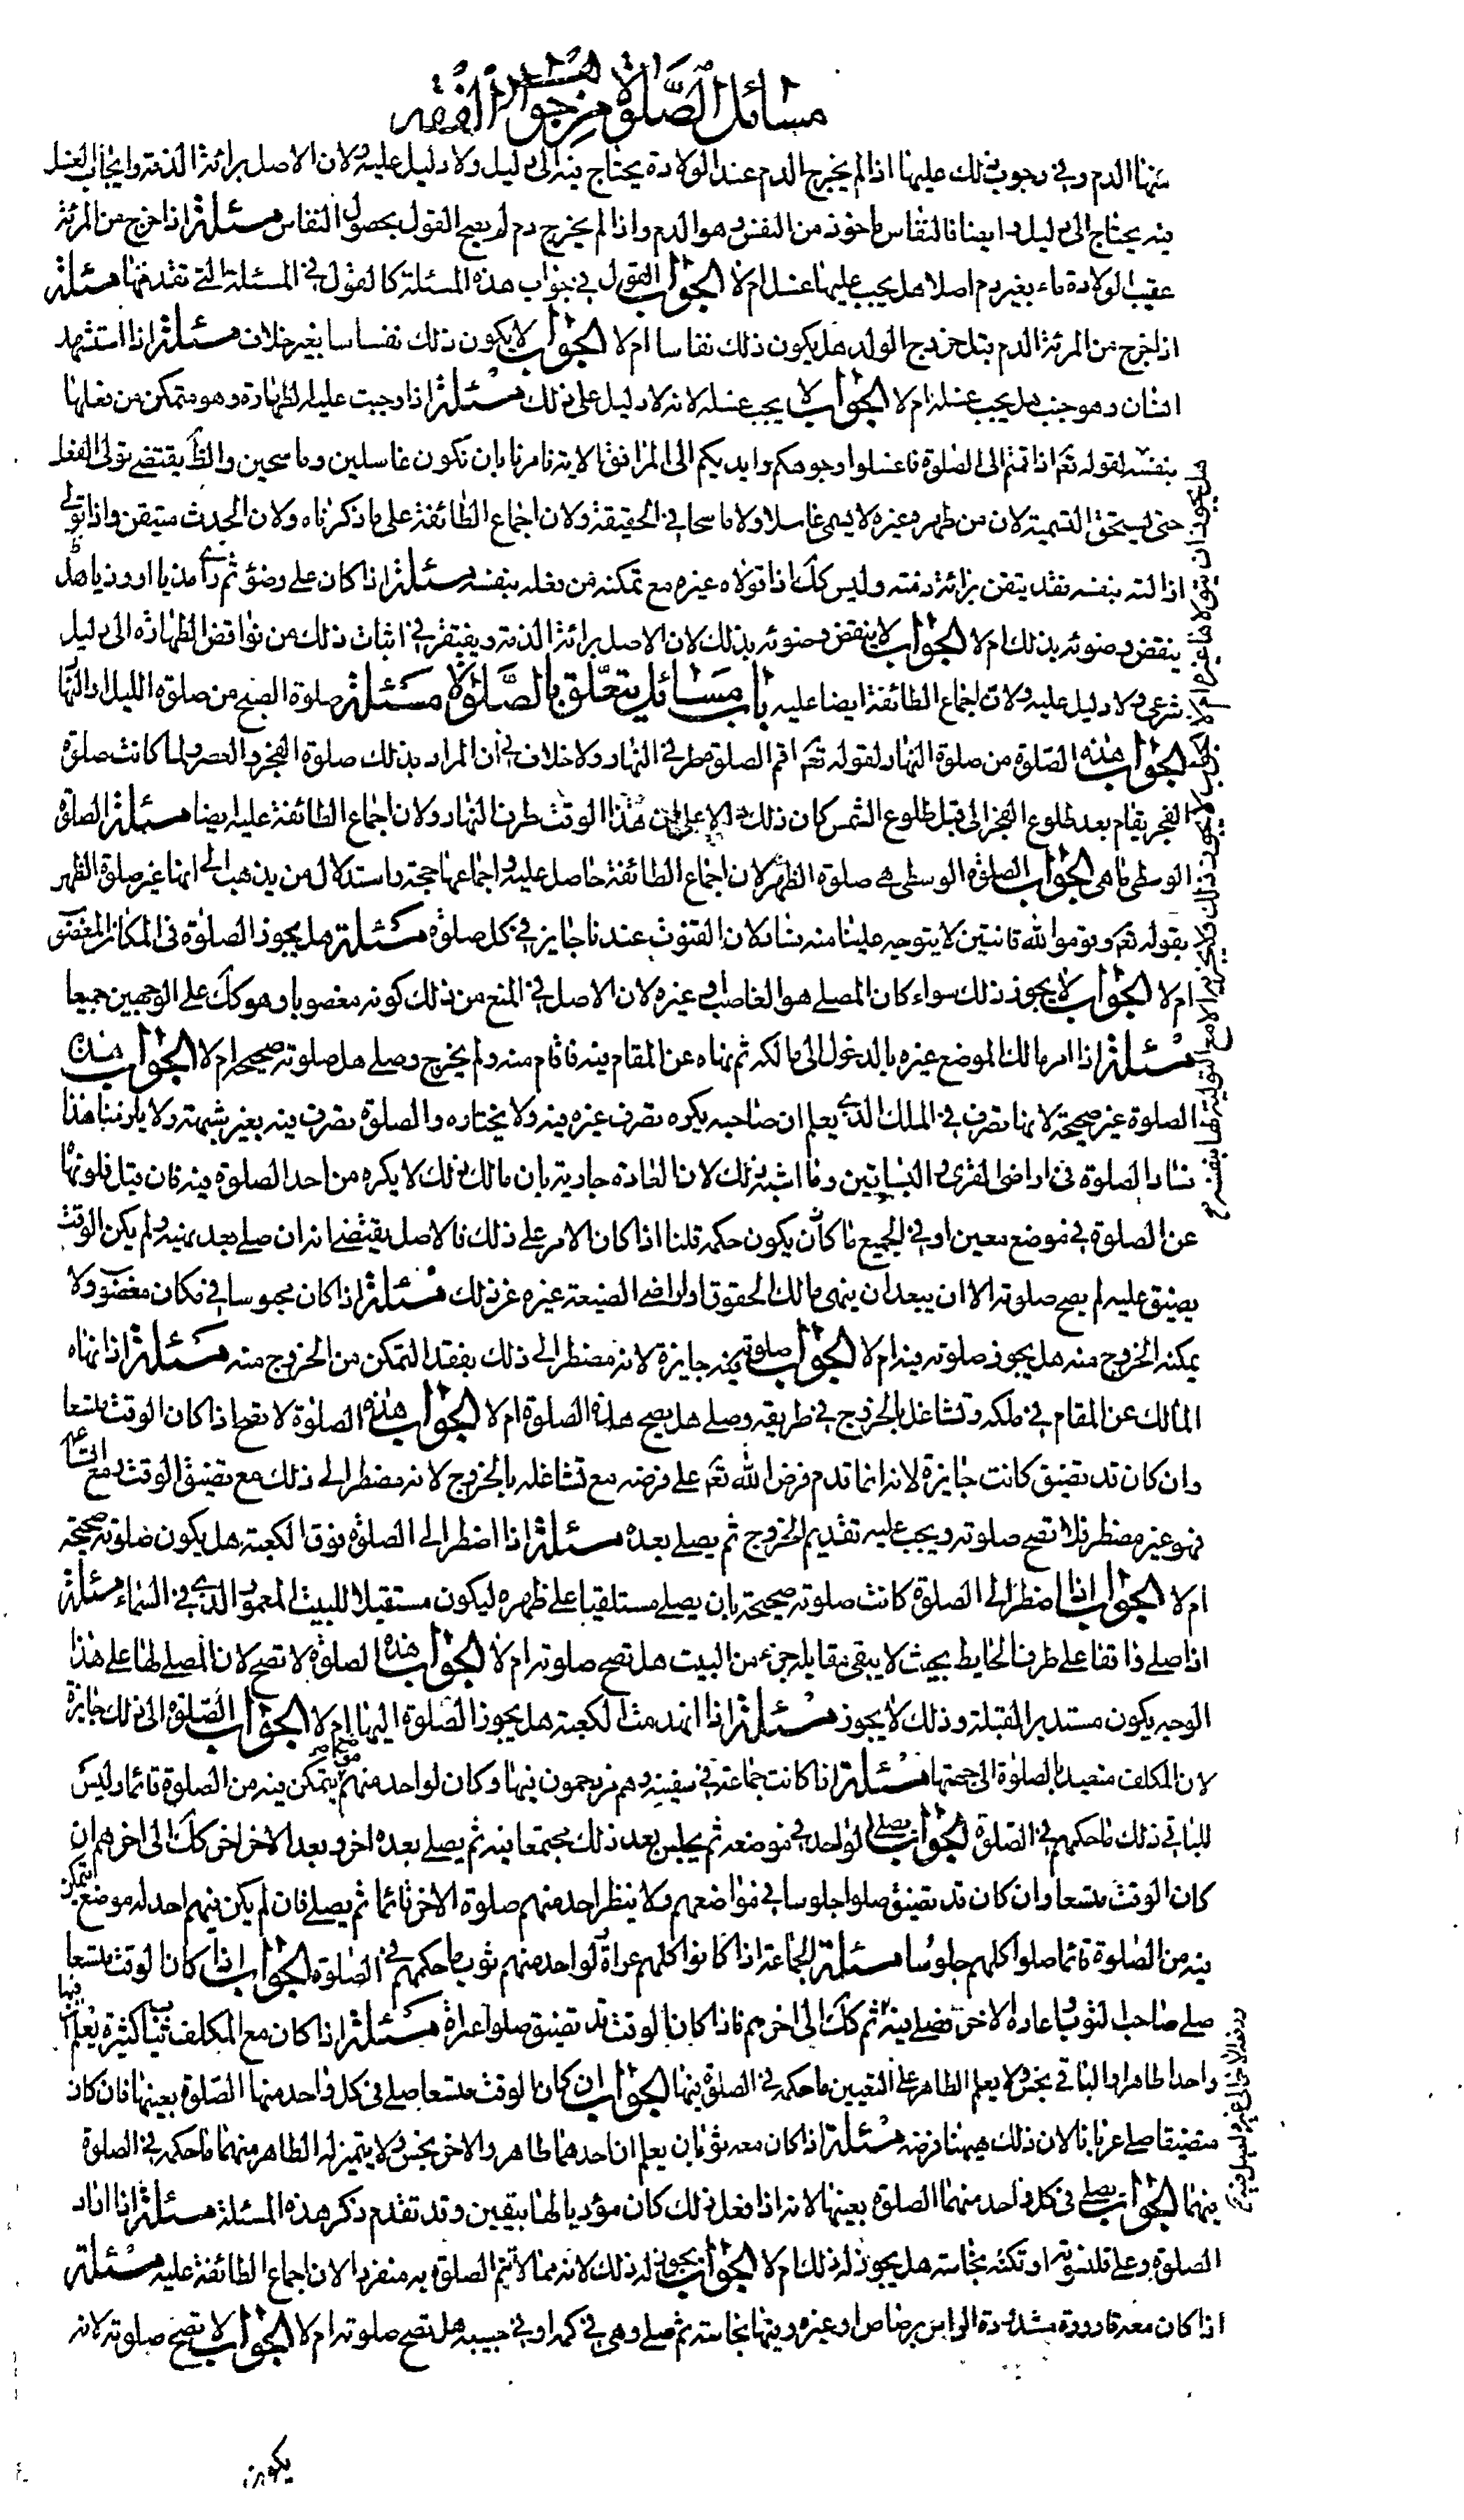 مسائل الصّلوة من جواهر الفقه
منها الدم وفي وجوب ذلك عليها اذا لم يخرج الدم عند الولادة يحتاج فيه الى دليل ولا دليل عليه ولان الاصل برائة الذمة وايجاب الغسل
فيه يحتاج الى دليل وايضا فالنفاس ماخوذ من النفس وهو الدم واذا لم يخرج دم لم يصح القول بحصول النفاس مسئلة اذا خرج من المرئة
عقيب الولادة ماء بغير دم اصلا هل يجب عليها غسل ام لا الجواب القول في جواب هذه المسئلة كالقول في المسئلة التي تقدمتها مسئلة
اذا خرج من المرئة الدم قبل خروج الولد هل يكون ذلك نفاسا ام لا الجواب لا يكون ذلك نفاسا بغير خلاف مسئلة اذا استشهد
انسان وهو جنب هل يجب غسله ام لا الجواب لا يجب غسله لانه لا دليل على ذلك مسئلة اذا وجبت عليه الطهارة وهو متمكن من فعلها
بنفسه لقوله تعم اذا قمتم الى الصلوة فاغسلوا وجوهكم وايديكم الى المرافق الاية فامرنا بان نكون غاسلين وماسحين والظ يقتضي تولى الفعل
حتى يستحق التسمية لان من طهره غيره لا يسمى غاسلا ولا ماسحا في الحقيقة ولان اجماع الطائفة على ما ذكرناه ولان الحدث متيقن واذا تولى
ازالته بنفسه فقد يتقن برائة ذمته وليس كك اذا تولاه غيره مع تمكنه من فعله بنفسه مسئلة اذا كان على وضوء ثم راى مذيا او وذيا هل
ينقض وضوئه بذلك ام لا الجواب لا ينقض وضوئه بذلك لان الاصل برائة الذمة ويفتقر في اثبات ذلك من نواقض الطهارة الى دليل
شرعى ولا دليل عليه ولان اجماع الطائفة ايضا عليه باب مسائل يتعلّق بالصّلوة مسئلة صلوة الصبح من صلوة الليل او النهار
الجواب هذه الصّلوة من صلوة النهار لقوله تعم اقم الصلوة طرفي النهار ولا خلاف في ان المراد بذلك صلوة الفجر والعصر ولما كانت صلوة
الفجر يقام بعد طلوع الفجر الى قبل طلوع الشمس كان ذلك دالا على ان هذا الوقت طرف النهار ولان اجماع الطائفة عليه ايضا مسئلة الصلوة
الوسطى ما هي الجواب الصلوة الوسطى هي صلوة الظهر لان اجماع الطائفة حاصل عليه واجماعها حجة واستدلال من يذهب الى انها غير صلوة الظهر
بقوله تعم وقوموا لله قانتين لا يتوجه علينا منه شئ لان القنوت عندنا جايز في كل صلوة مسئلة هل يجوز الصلوة في المكان المغصوب
ام لا الجواب لا يجوز ذلك سواء كان المصلي هو الغاصب او غيره لان الاصل في المنع من ذلك كونه مغصوبا وهو كك على الوجهين جميعا
مسئلة اذا امر مالك الموضع غيره بالدخول الى مالكه ثم نهاه عن المقام فيه فاقام منه ولم يخرج وصلى هل صلوته صحيحة ام لا الجواب هذه
الصلوة غير صحيحة لانها تصرف في الملك الذي يعلم ان صاحبه يكره تصرف غيره فيه ولا يختاره والصلوة تصرف فيه بغير شبهة ولا يلزمنا هذا
فساد الصلوة في اراضي القرى و البساتين وما اشبه ذلك لان العادة جارية بان مالك ذلك لا يكره من احد الصلوة فيه فان قيل فلو نهى
عن الصلوة في موضع معين او في الجميع ما كان يكون حكمه قلنا اذا كان الامر على ذلك فالاصل يقتضى انه ان صلى بعد نهيه ولم يكن الوقت
يضيق عليه لم يصح صلوته الا ان يبعد ان ينهى مالك الحقوق واراضي الضيعة غيره عن ذلك مسئلة اذا كان محبوسا في مكان مغصوب ولا
يمكنه الخروج منه هل يجوز صلوته فيه ام لا الجواب صلوته فيه جايزة لانه مضطر الى ذلك بفقد التمكن من الخروج منه مسئلة اذا نهاه
المالك عن المقام في ملكه وتشاغل بالخروج في طريقه وصلى هل يصح هذه الصلوة ام لا الجواب هذه الصلوة لا تصح اذا كان الوقت متسعا
وان كان قد تضيق كانت جايزة لانه انما قدم فرض الله تعم على فرضه مع تشاغله بالخروج لانه مضطر الى ذلك مع تضيق الوقت ومع اتساعه
فهو غير مضطر فلا تصح صلوته ويجب عليه تقديم الخروج ثم يصلي بعده مسئلة اذا اضطر الى الصلوة فوق الكعبة هل يكون صلوته صحيحة
ام لا الجواب اذا اضطر الى الصلوة كانت صلوته صحيحة بان يصلي مستلقيا على ظهره ليكون مستقبلا للبيت المعمور الذي في السماء مسئلة
اذا صلى واقفا على طرف الحايط بحيث لا يبقى مقابله جزء من البيت هل تصح صلوته ام لا الجواب هذه الصلوة لا تصح لان المصلي لها على هذا
الوجه يكون مستدبر القبلة وذلك لا يجوز مسئلة اذا انهدمت الكعبة هل يجوز الصلوة اليها ام لا الجواب الصّلوة الى ذلك جايزة
لان المكلف متعبد بالصلوة الى جهتها مسئلة اذا كانت جماعة في سفينة وهم مزدحمون فيها وكان لواحد منهم موضع يتمكن فيه من الصلوة قائما وليس
للباقي ذلك ما حكمهم في الصلوة الجواب يصلي الواحد في موضعه ثم يجلس بعد ذلك مجتمعا فيه ثم يصلي بعده اخر وبعد الاخر اخر كك الى اخرهم ان
كان الوقت متسعا وان كان قد تضيق صلوا جلوسا في مواضعهم ولا ينظر احد منهم صلوة الاخر قائما ثم يصلي فان لم يكن فيهم احد له موضع يتمكن
فيه من الصلوة قائما صلوا كلهم جلوسا مسئلة الجماعة اذا كانوا كلهم عراة لواحد منهم ثوب ما حكمهم في الصلوة الجواب اذا كان الوقت متسعا
صلى صاحب الثوب واعاره لاخر فصلى فيه ثم كك الى اخرهم فاذا كان الوقت قد تضيق صلوا عراة مسئلة اذا كان مع المكلف ثياب كثيرة يعلم ان فيها
واحدا طاهرا والباقي نجس ولا يعلم الطاهر على التعيين ما حكمه في الصلوة فيها الجواب ان كان الوقت متسعا صلى في كل واحد منها الصّلوة بعينها فان كان
متضيقا صلى عريانا لان ذلك هيهنا فرضه مسئلة اذا كان معه ثوبان يعلم ان احدهما طاهر والاخر نجس ولا يتميز له الطاهر منهما ما حكمه في الصلوة
فيهما الجواب يصلي في كل واحد منهما الصلوة بعينها لانه اذا فعل ذلك كان مؤديا لها بيقين وقد تقدم ذكر هذه المسئلة مسئلة اذا اراد
الصلوة وعلى قلنسوته او تكته نجاسة هل يجوز له ذلك ام لا الجواب يجوز له ذلك لانه مما لا تتم الصلوة به منفردا لان اجماع الطائفة عليه مسئلة
اذا كان معه قارورة مشدودة الراس برصاص او غيره وفيها نجاسة ثم صلى وهي في كمه او في جيبه هل تصح صلوته ام لا الجواب لا تصح صلوته لانه
يكون
هل يجوز ان يتولاها غيره ام لا الجواب لا يجوز ذلك ولا يجزيه الا مع التولية لها بنفسه